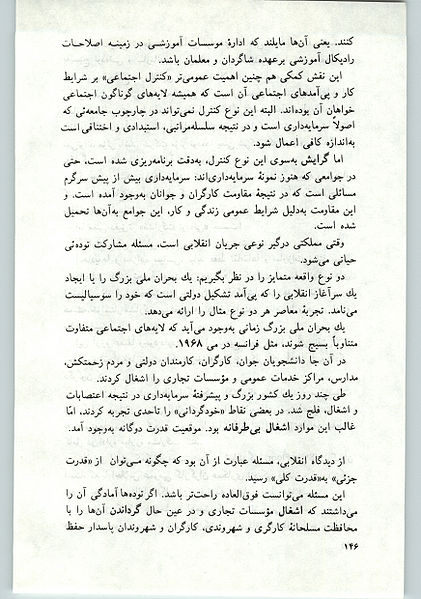 کنند. یعنی آن‌ها مایلند که ادارهٔ موسسات آموزشی در زمینه اصلاحات
رادیکال آموزشی برعهده شاگردان و معلمان باشد.
این نقش کمکی هم چنین اهمیت عمومی‌تر «کنترل اجتماعی» بر شرایط
کار و پی‌آمدهای اجتماعی آن است که همیشه لایه‌های گوناگون اجتماعی
خواهان آن بوده‌اند. البته این نوع کنترل نمی‌تواند در چارچوب جامعه‌ئی که
اصولاً سرمایه‌داری است و در نتیجه سلسله‌مراتبی، استبدادی و اختناقی است
به‌اندازه کافی اعمال شود.
اما گرایش به‌سوی این نوع کنترل، به‌دقت برنامه‌ریزی شده است، حتی
در جوامعی که هنوز نمونهٔ سرمایه‌داری‌اند: سرمایه‌داری بیش از پیش سرگرم
مسائلی است که در نتیجهٔ مقاومت کارگران و جوانان به‌وجود آمده است. و
این مقاومت به‌دلیل شرایط عمومی زندگی و کار، این جوامع به‌آن‌ها تحمیل
شده است.
وقتی مملکتی درگیر نوعی جریان انقلابی است، مسئله مشارکت توده‌ئی
حیاتی می‌شود.
دو نوع واقعه متمایز را در نظر بگیریم: یك بحران ملی بزرگ را یا ایجاد
یك سرآغاز انقلابی را که پی‌آمد تشکیل دولتی است که خود را سوسیالیست
می‌نامد. تجربهٔ معاصر هر دو نوع مثال را ارائه می‌دهد.
یك بحران ملی بزرگ زمانی به‌وجود می‌آید که لایه‌های اجتماعی متفاوت
متناوباً بسیج شوند، مثل فرانسه در می ۱۹۶۸.
در آن جا دانشجویان جوان، کارگران، کارمندان دولتی و مردم زحمتکش،
مدارس، مراکز خدمات عمومی و مؤسسات تجاری را اشغال کردند.
طی چند روز یك کشور بزرگ و پیشرفتهٔ سرمایه‌داری در نتیجه اعتصابات
و اشغال، فلج شد. در بعضی نقاط «خودگردانی» را تاحدی تجربه کردند، امّا
غالب این موارد اشغال بی‌طرفانه بود. موقعیت قدرت دوگانه به‌وجود آمد.
از دیدگاه انقلابی، مسئله عبارت از آن بود که چگونه می‌توان از «قدرت
جزئی» به«قدرت کلی» رسید.
این مسئله می‌توانست فوق‌العاده راحت‌تر باشد. اگر توده‌ها آمادگی آن را
می‌داشتند که اشغال مؤسسات تجاری و در عین حال گرداندن آن‌ها را با
محافظت مسلحانهٔ کارگری و شهروندی، کارگران و شهروندان پاسدار حفظ
۱۴۶